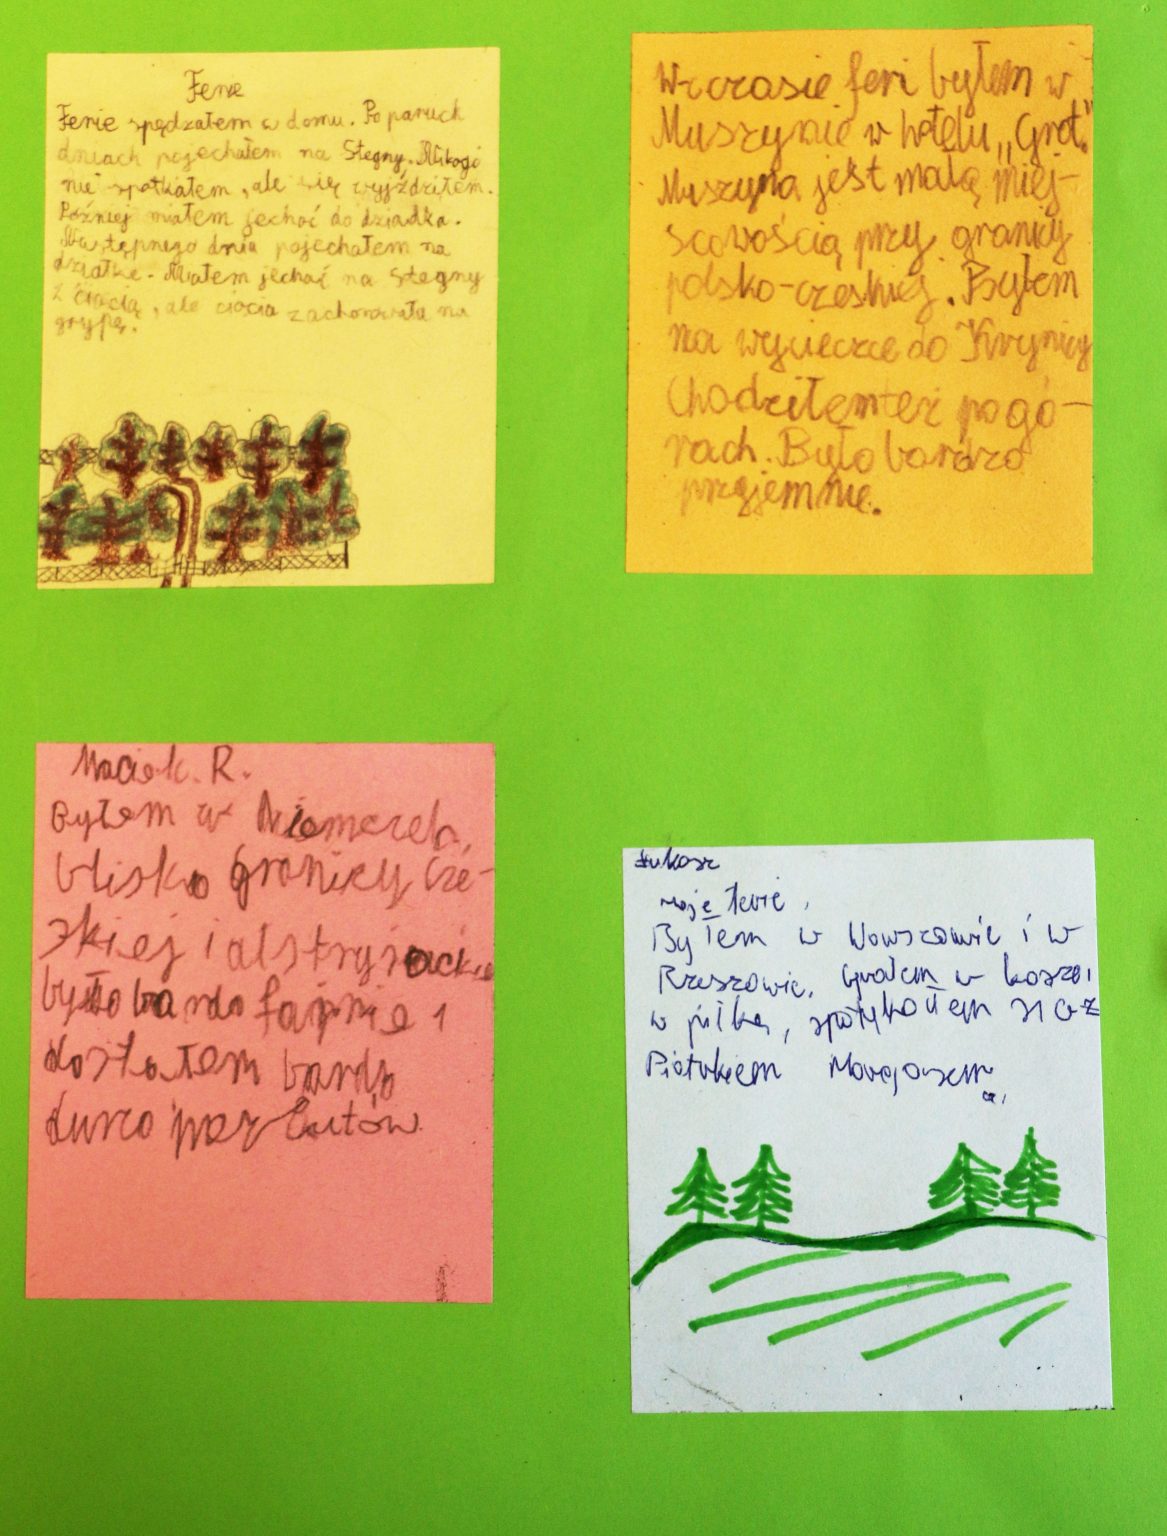 Ferie
Ferie spędzałem w domu. Po paruch
dniach pojechałem na Stegny. Nikogo
nie spotkałem, ale się wyjździłem.
Później miałem jechać do dziadka.
Następnego dnia pojechałem na
działkę. Miałem jechać na Stegny
z ciocią, ale ciocia zachorowała na
grypę.
W czasie feri byłem w
Muszynie w hotelu „Grot."
Muszyna jest małą miej-
scowością przy granicy
polsko-czeskiej. Byłem
na wycieczce do Krynicy
Chodziłem też po gó-
rach. Było bardzo
przyjemnie.
Maciek. R.
Byłem w Niemczech,
blisko granicy cze-
skiej i
było bardo fajnie i
dostałem bardo
durzo prezentów.
Łukasz
Moje ferie.
Byłem w Warszawie i w
Rzeszowie. Grałem w kosza i
w piłkę, spotykałem się z
Piotrkiem